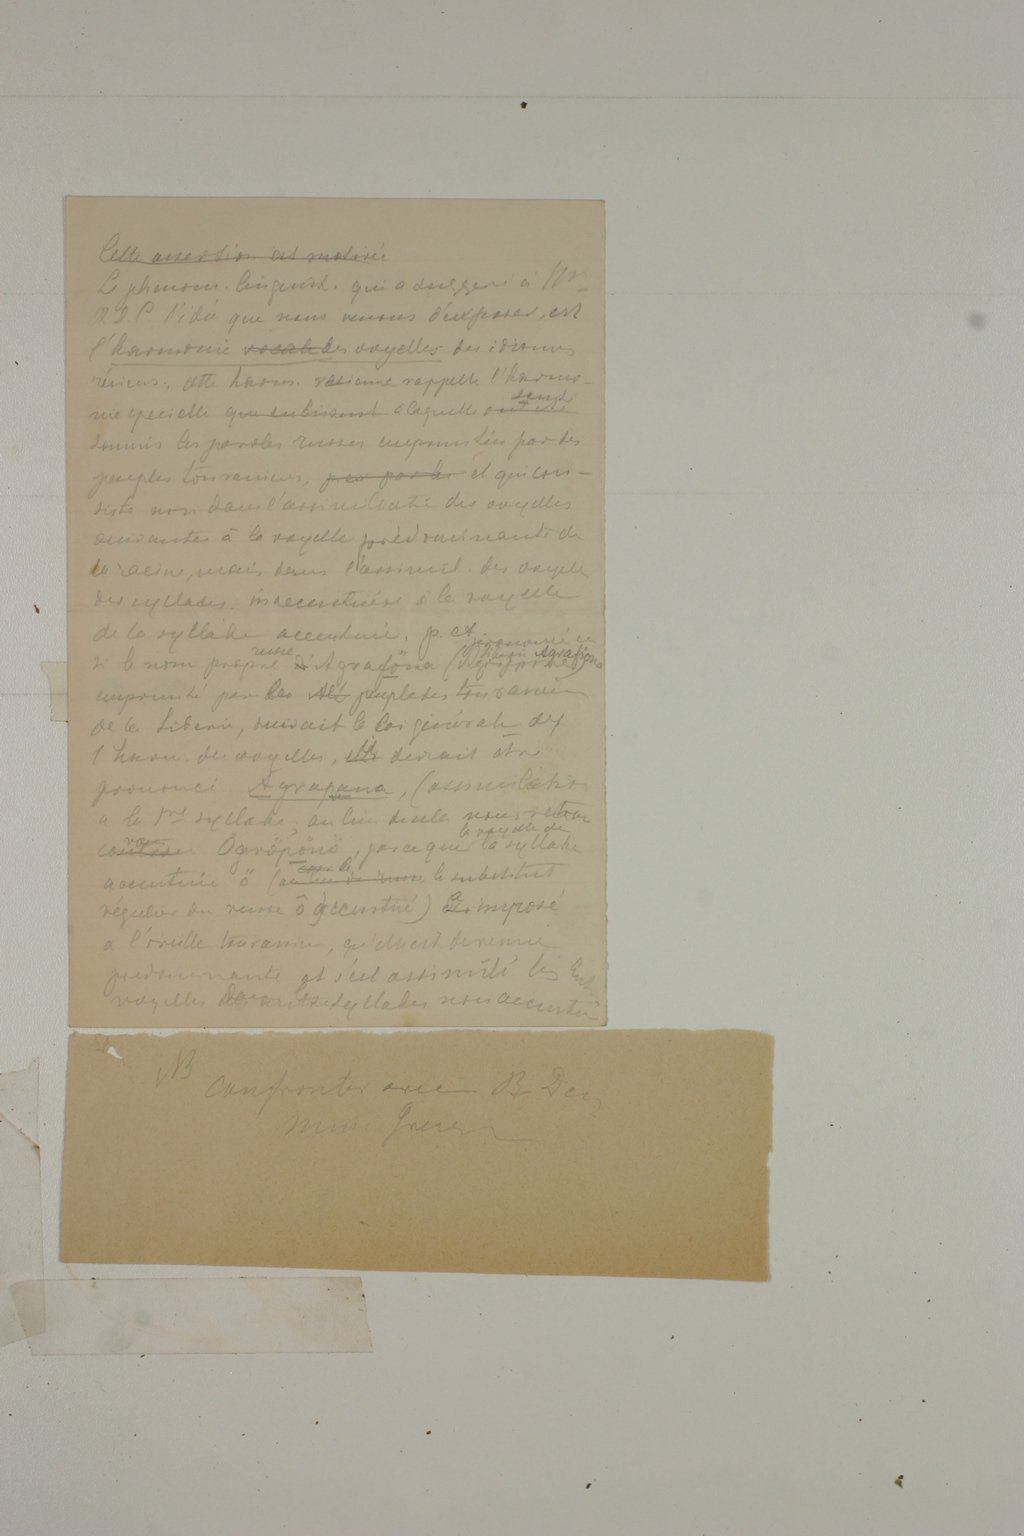 Cette assertion est motivée
Le phénom. linguist. qui a suggéré à Mr
l'idée que nous venons d'exposer, est
l'harmonie vocale des voyelles des idiomes
résiens, cette harm. résienne rappelle l'harmo-
nie specielle que subissent à laquelle sont
soumis les paroles russes empruntées par des
peuples touraniens, et qui con-
siste non dans l'assimilatio des voyelles
suivantes à la voyelle prédominante de
la racine, mais dans l'assimil. des voyelles
des syllabes inaccentuées à la voyelle
de la syllabe accentuée. p. ex.
si le nom propre russe d'Agraföna (prononcié en Agrafiona)
emprunté par les peuplades touraniens
de la Siberie, suivait la loi générale de
l'harm. des voyelles, il devrait être
prononcé Agrapana, (assimilation
à la 1re syllabe, au lieu de cela nous retrou
vons Ögröpönö, parceque la voyelle de la syllabe
accentuée ö (le substitut
régulier du russe ô accentué) a imposé
a l'oreille touranien, qu'elle est devenue
predominante et s'est assimilé les
voyelles des syllabes non accentuées
NB
Confronter avec B De